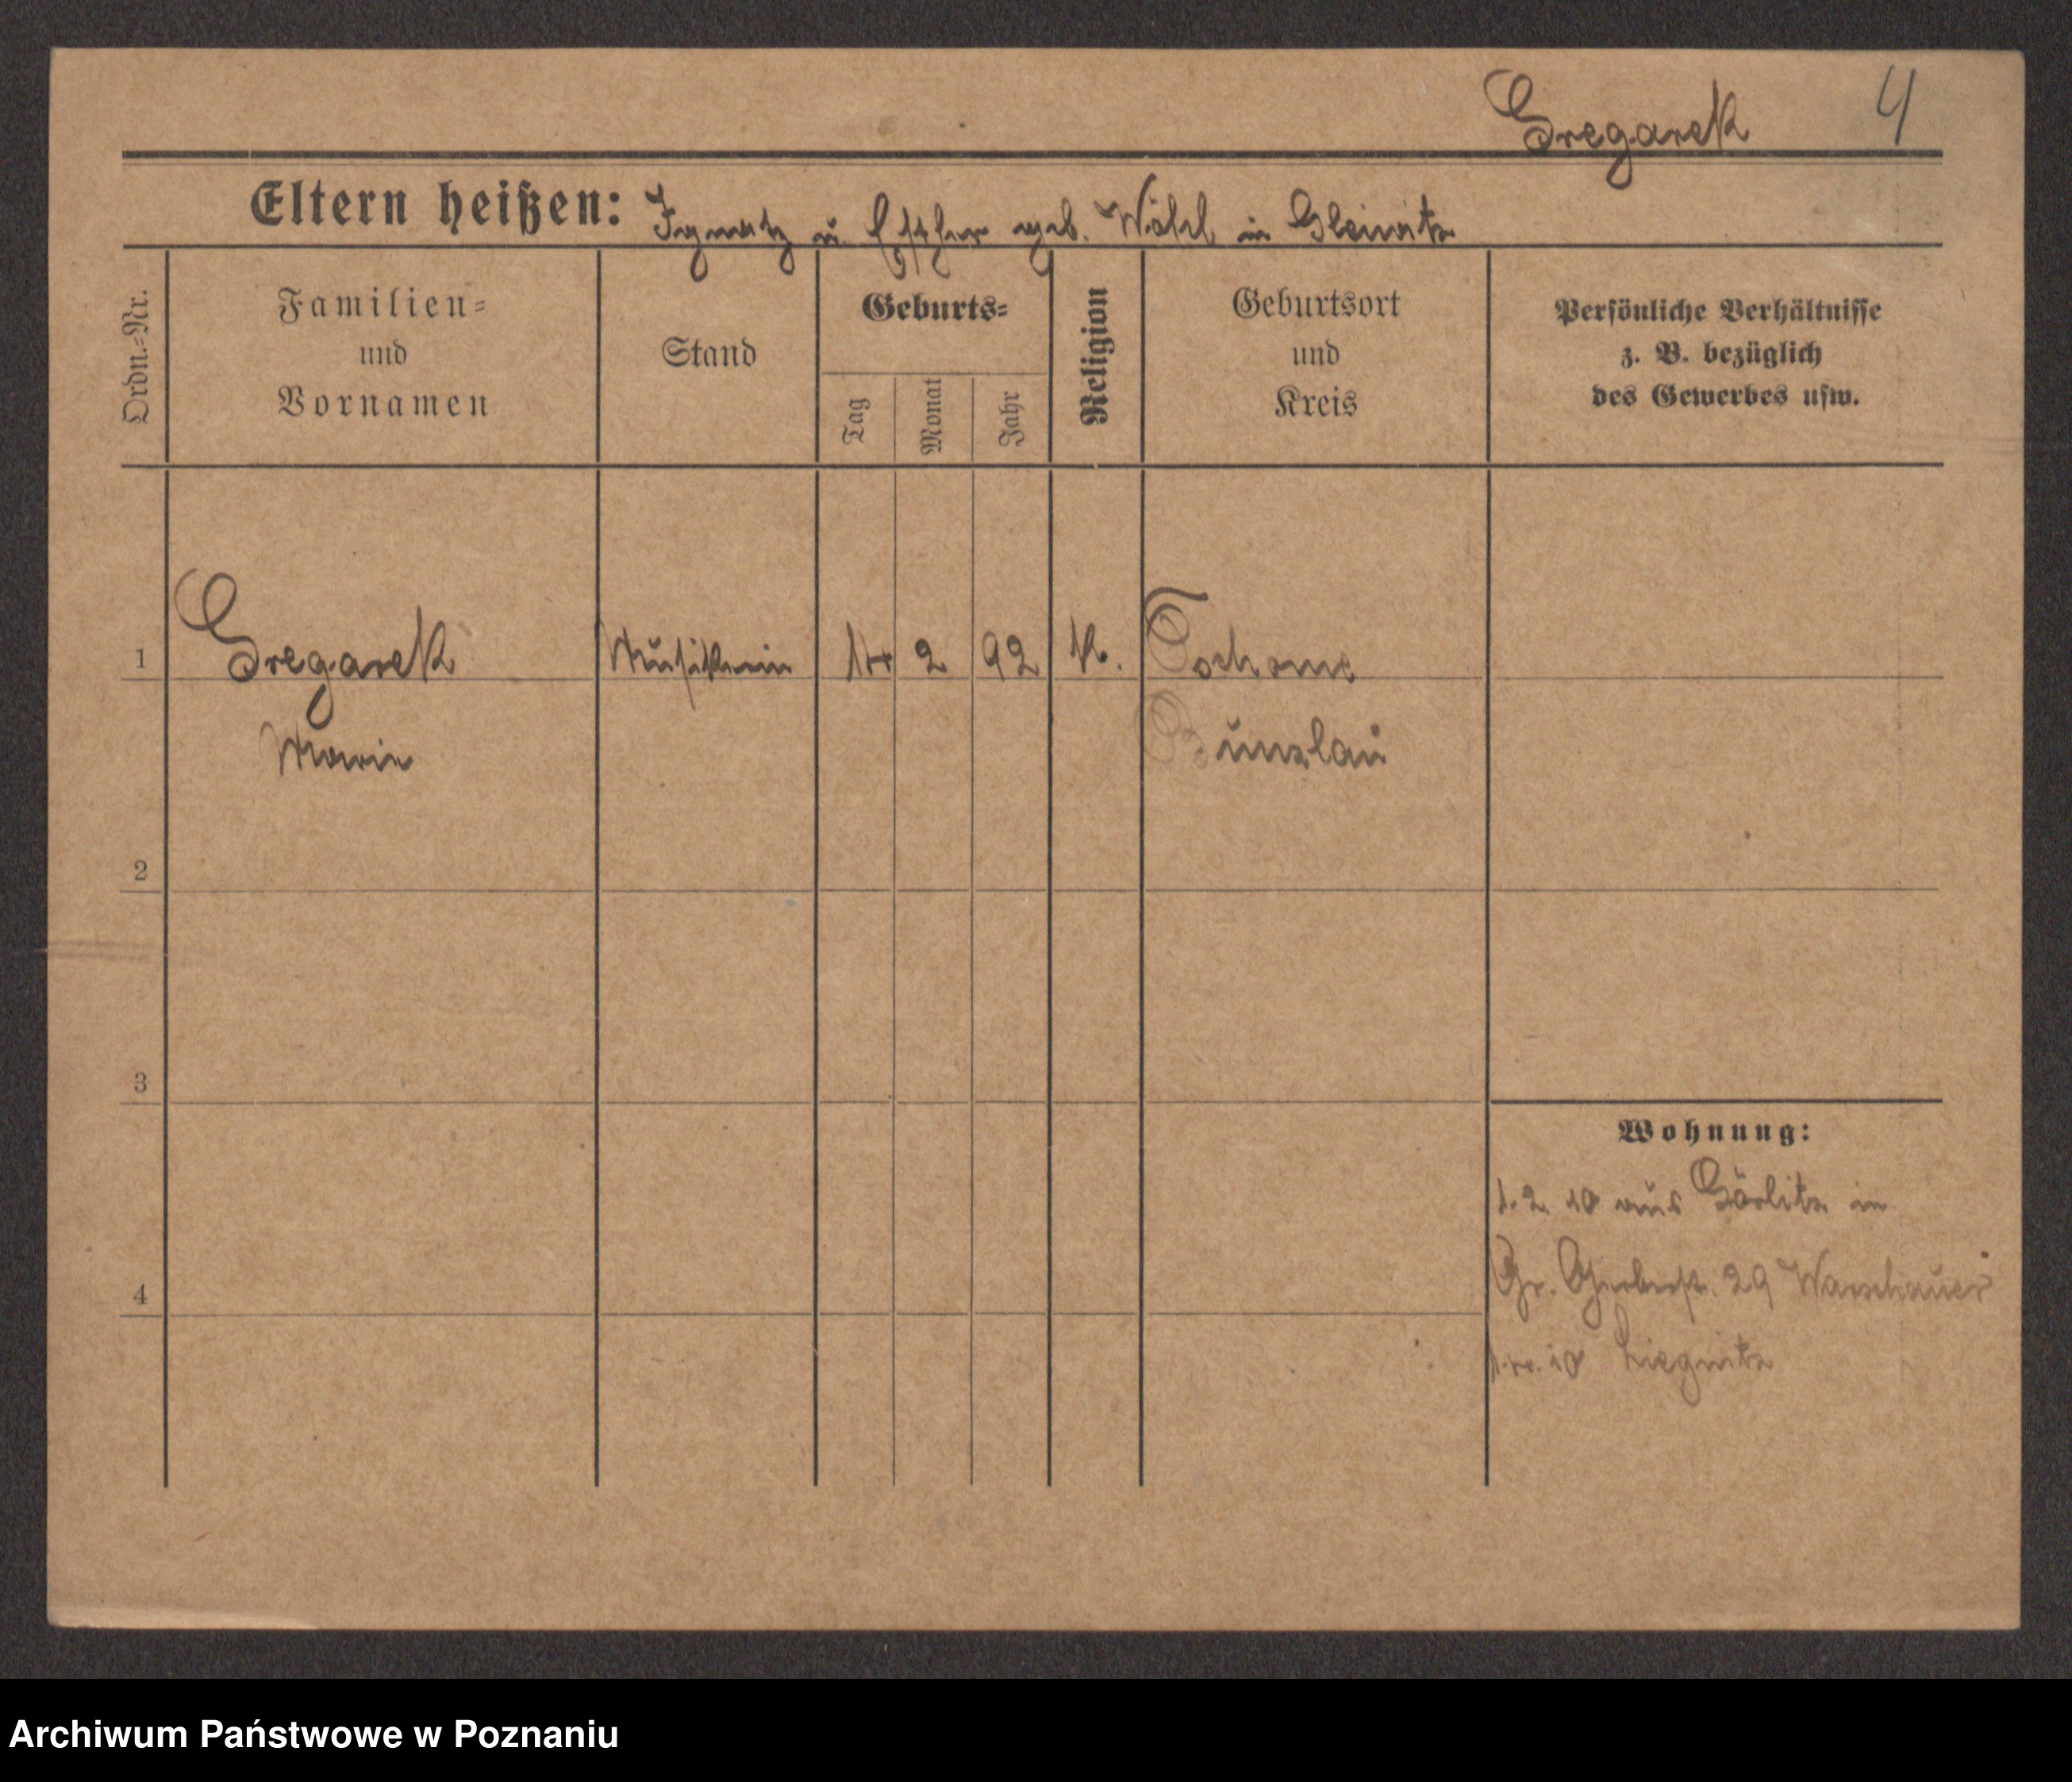 Gregarek 4
Eltern heißen: Ignatz u. Esther geb. in Gleiwitz
Ordn.=Nr.
Familien=
und
Vornamen
Stand
Geburts=
Tag
Monat
Jahr
Religion
Geburtsort
und
Kreis
Persönliche Verhältnisse
z. B. bezüglich
des Gewerbes usw.
1 Gregarek Musikerin 14 2 92 K.
Marie Bunzlau
2
3
4
Wohnung:
1. 2. 10 aus Görlitz in
Gr. Gerberstr. 29 Warschauer
10 Liegnitz
Archiwum Państwowe w Poznaniu